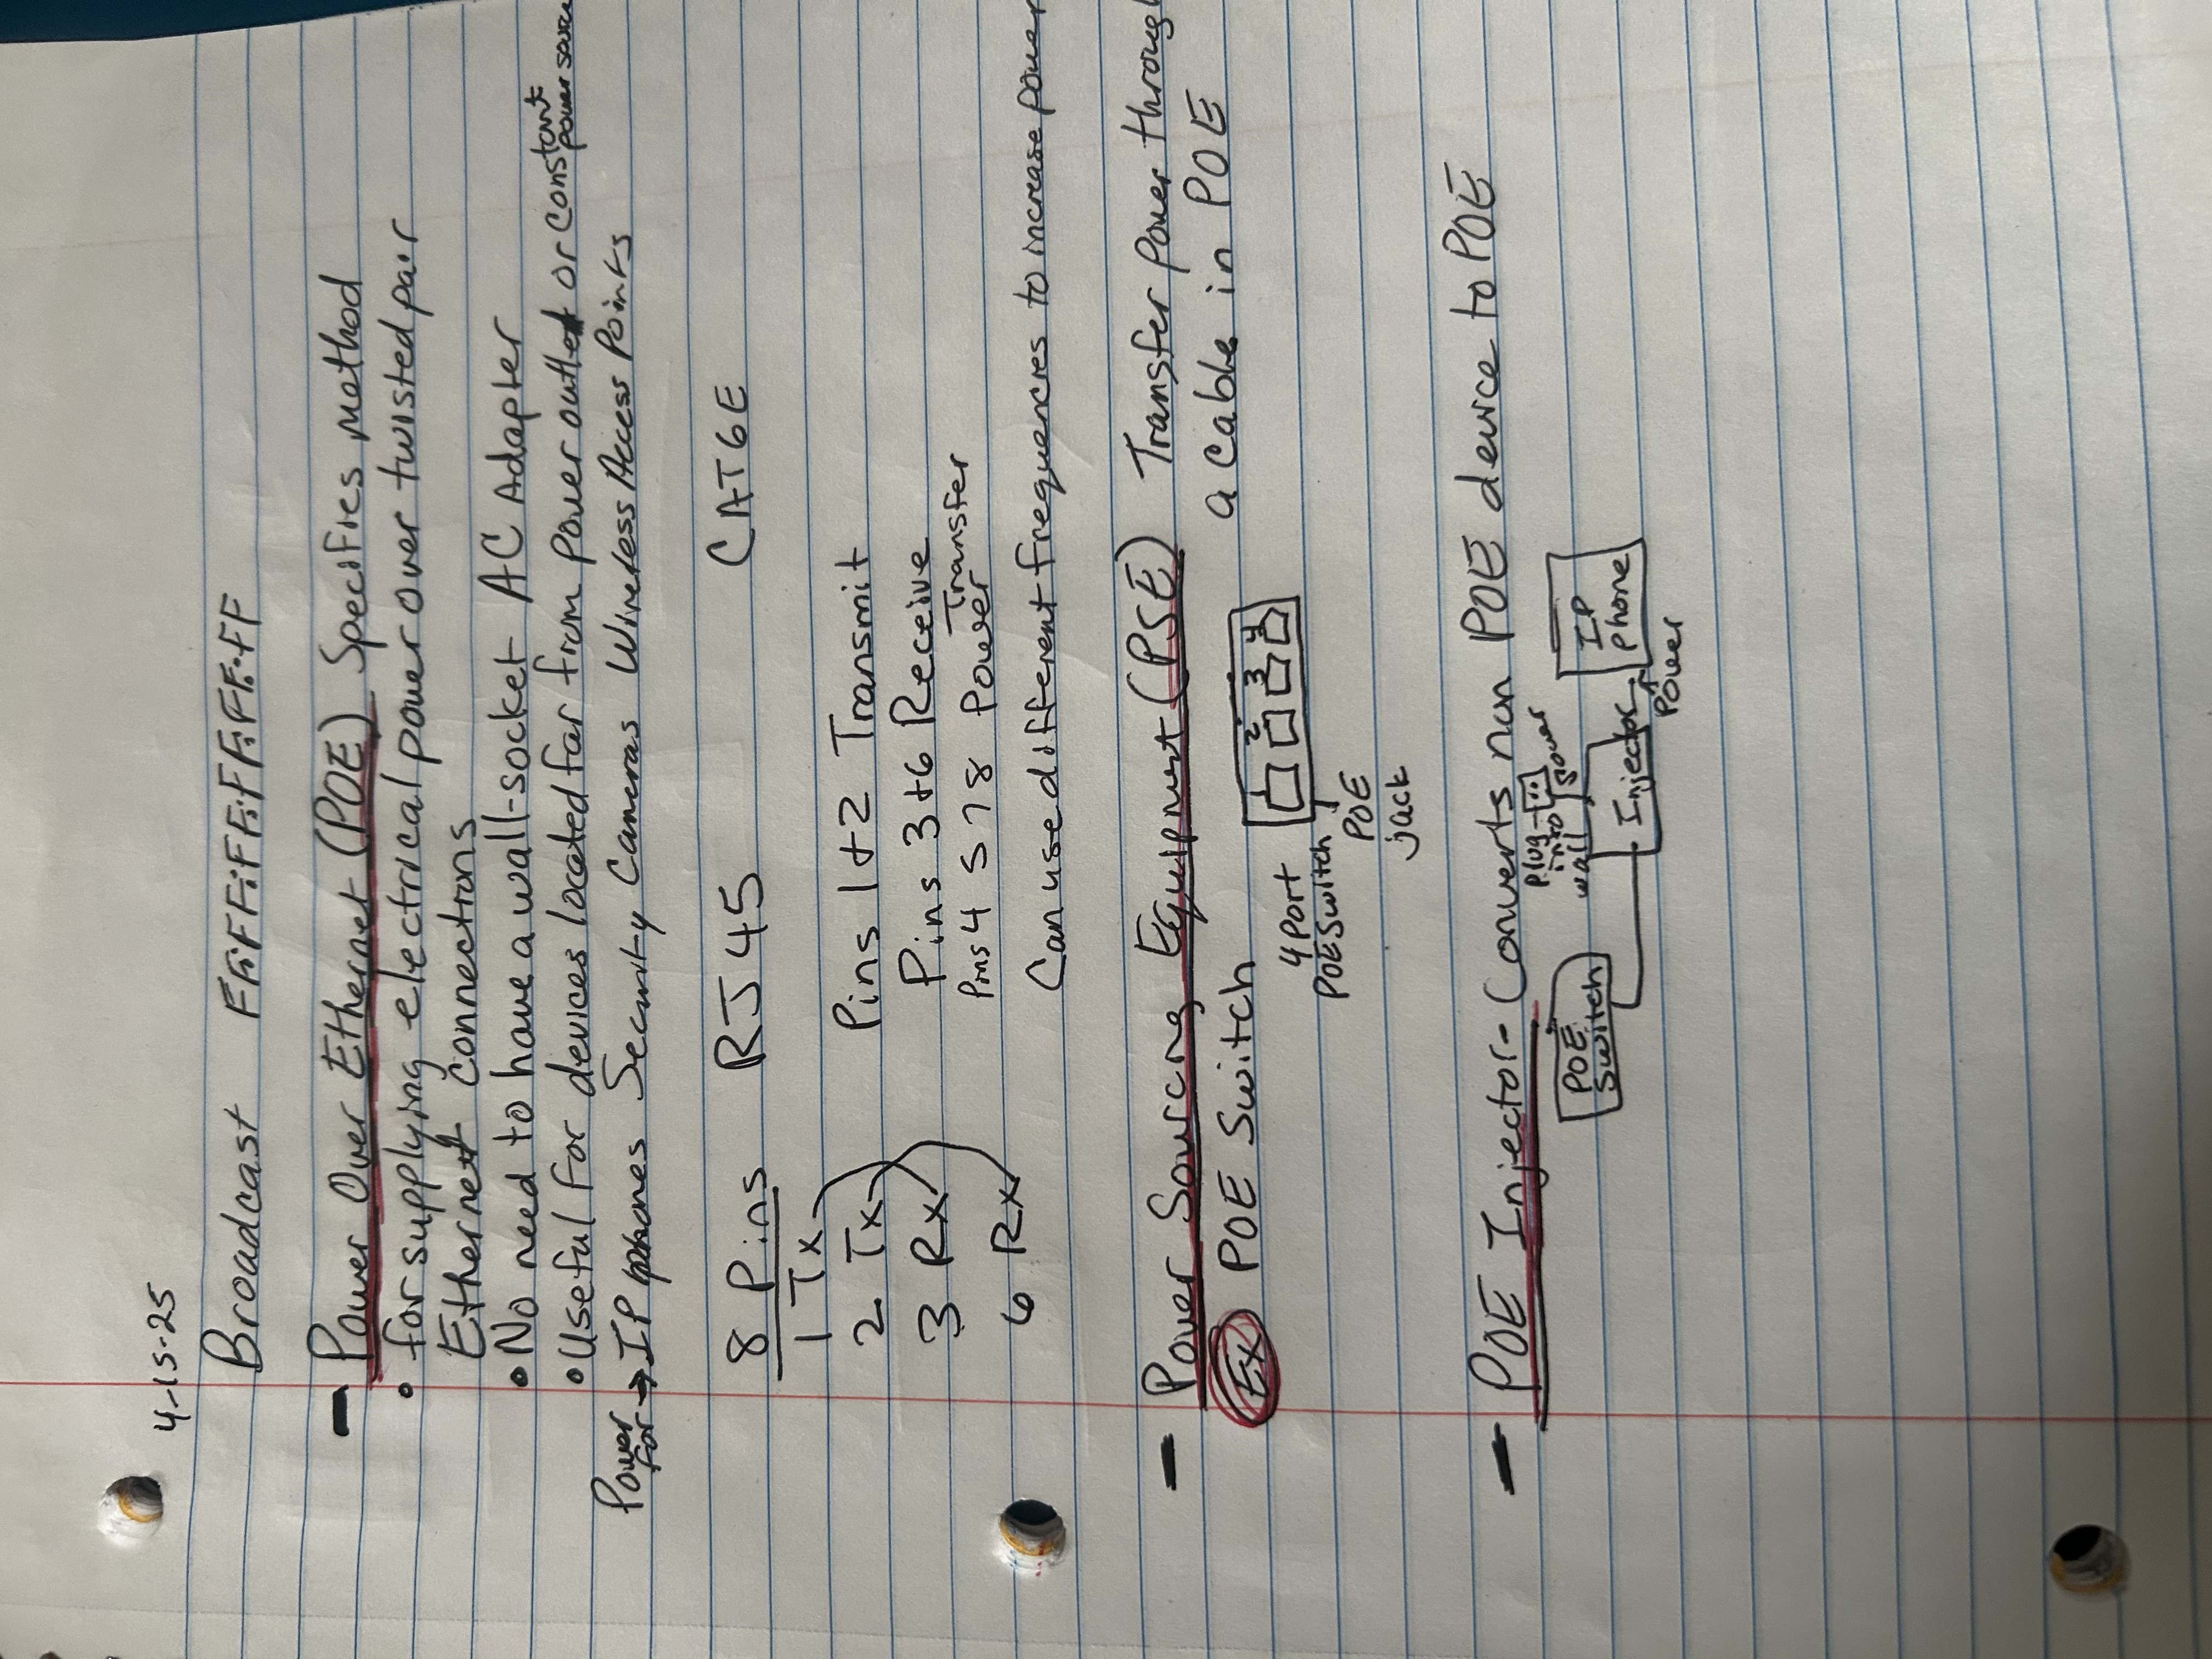 4-15-25
Broadcast FF:FF:FF:FF:FF:FF
- Power Over Ethernet (POE) Specifies method
• for supplying electrical power over twisted pair
Ethernet connections
• No need to have a wall-socket AC Adapter
• Useful for devices located far from power outlet or constant power source
Power for → IP phones Security Cameras Wireless Access Points
8 Pins RJ45 CAT6E
1 Tx
2 Tx Pins 1+2 Transmit
3 Rx Pins 3+6 Receive
Pins 4 5 7 8 Power Transfer
6 Rx
Can use different frequencies to increase power
- Power Sourcing Equipment (PSE) Transfer power through
a cable in POE
Ex POE Switch
1 2 3 4
4 Port
POE Switch
POE
jack
- POE Injector - Converts non POE device to POE
POE
Switch
plug
into
wall
Power
Injector
IP
phone
Power